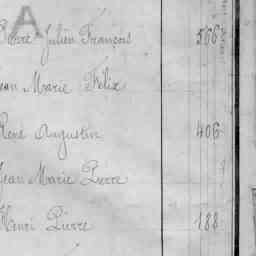 A
Pierre Julien François 566
Jean Marie Félix
René Augustin 406
Jean Marie Pierre
Henri Pierre 188